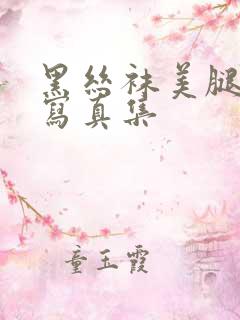 黑丝袜美腿
写真集
童玉霞